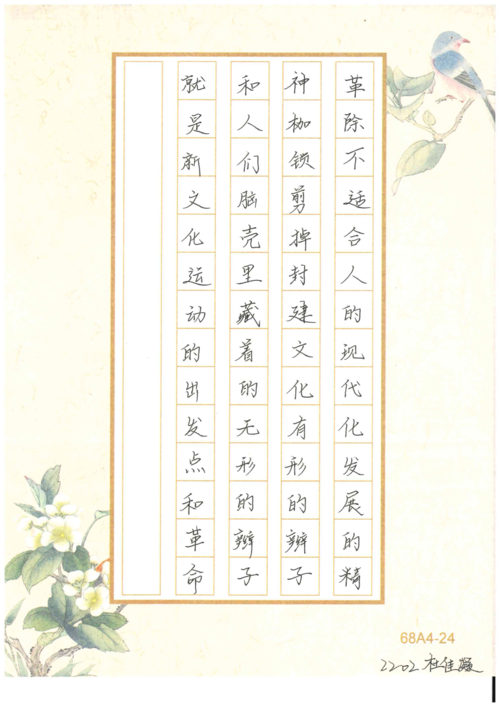 革除不适合人的现代化发展的精
神枷锁剪掉封建文化有形的辫子
和人们脑壳里藏着的无形的辫子
就是新文化运动的出发点和革命
68A4-24
2202 杜佳